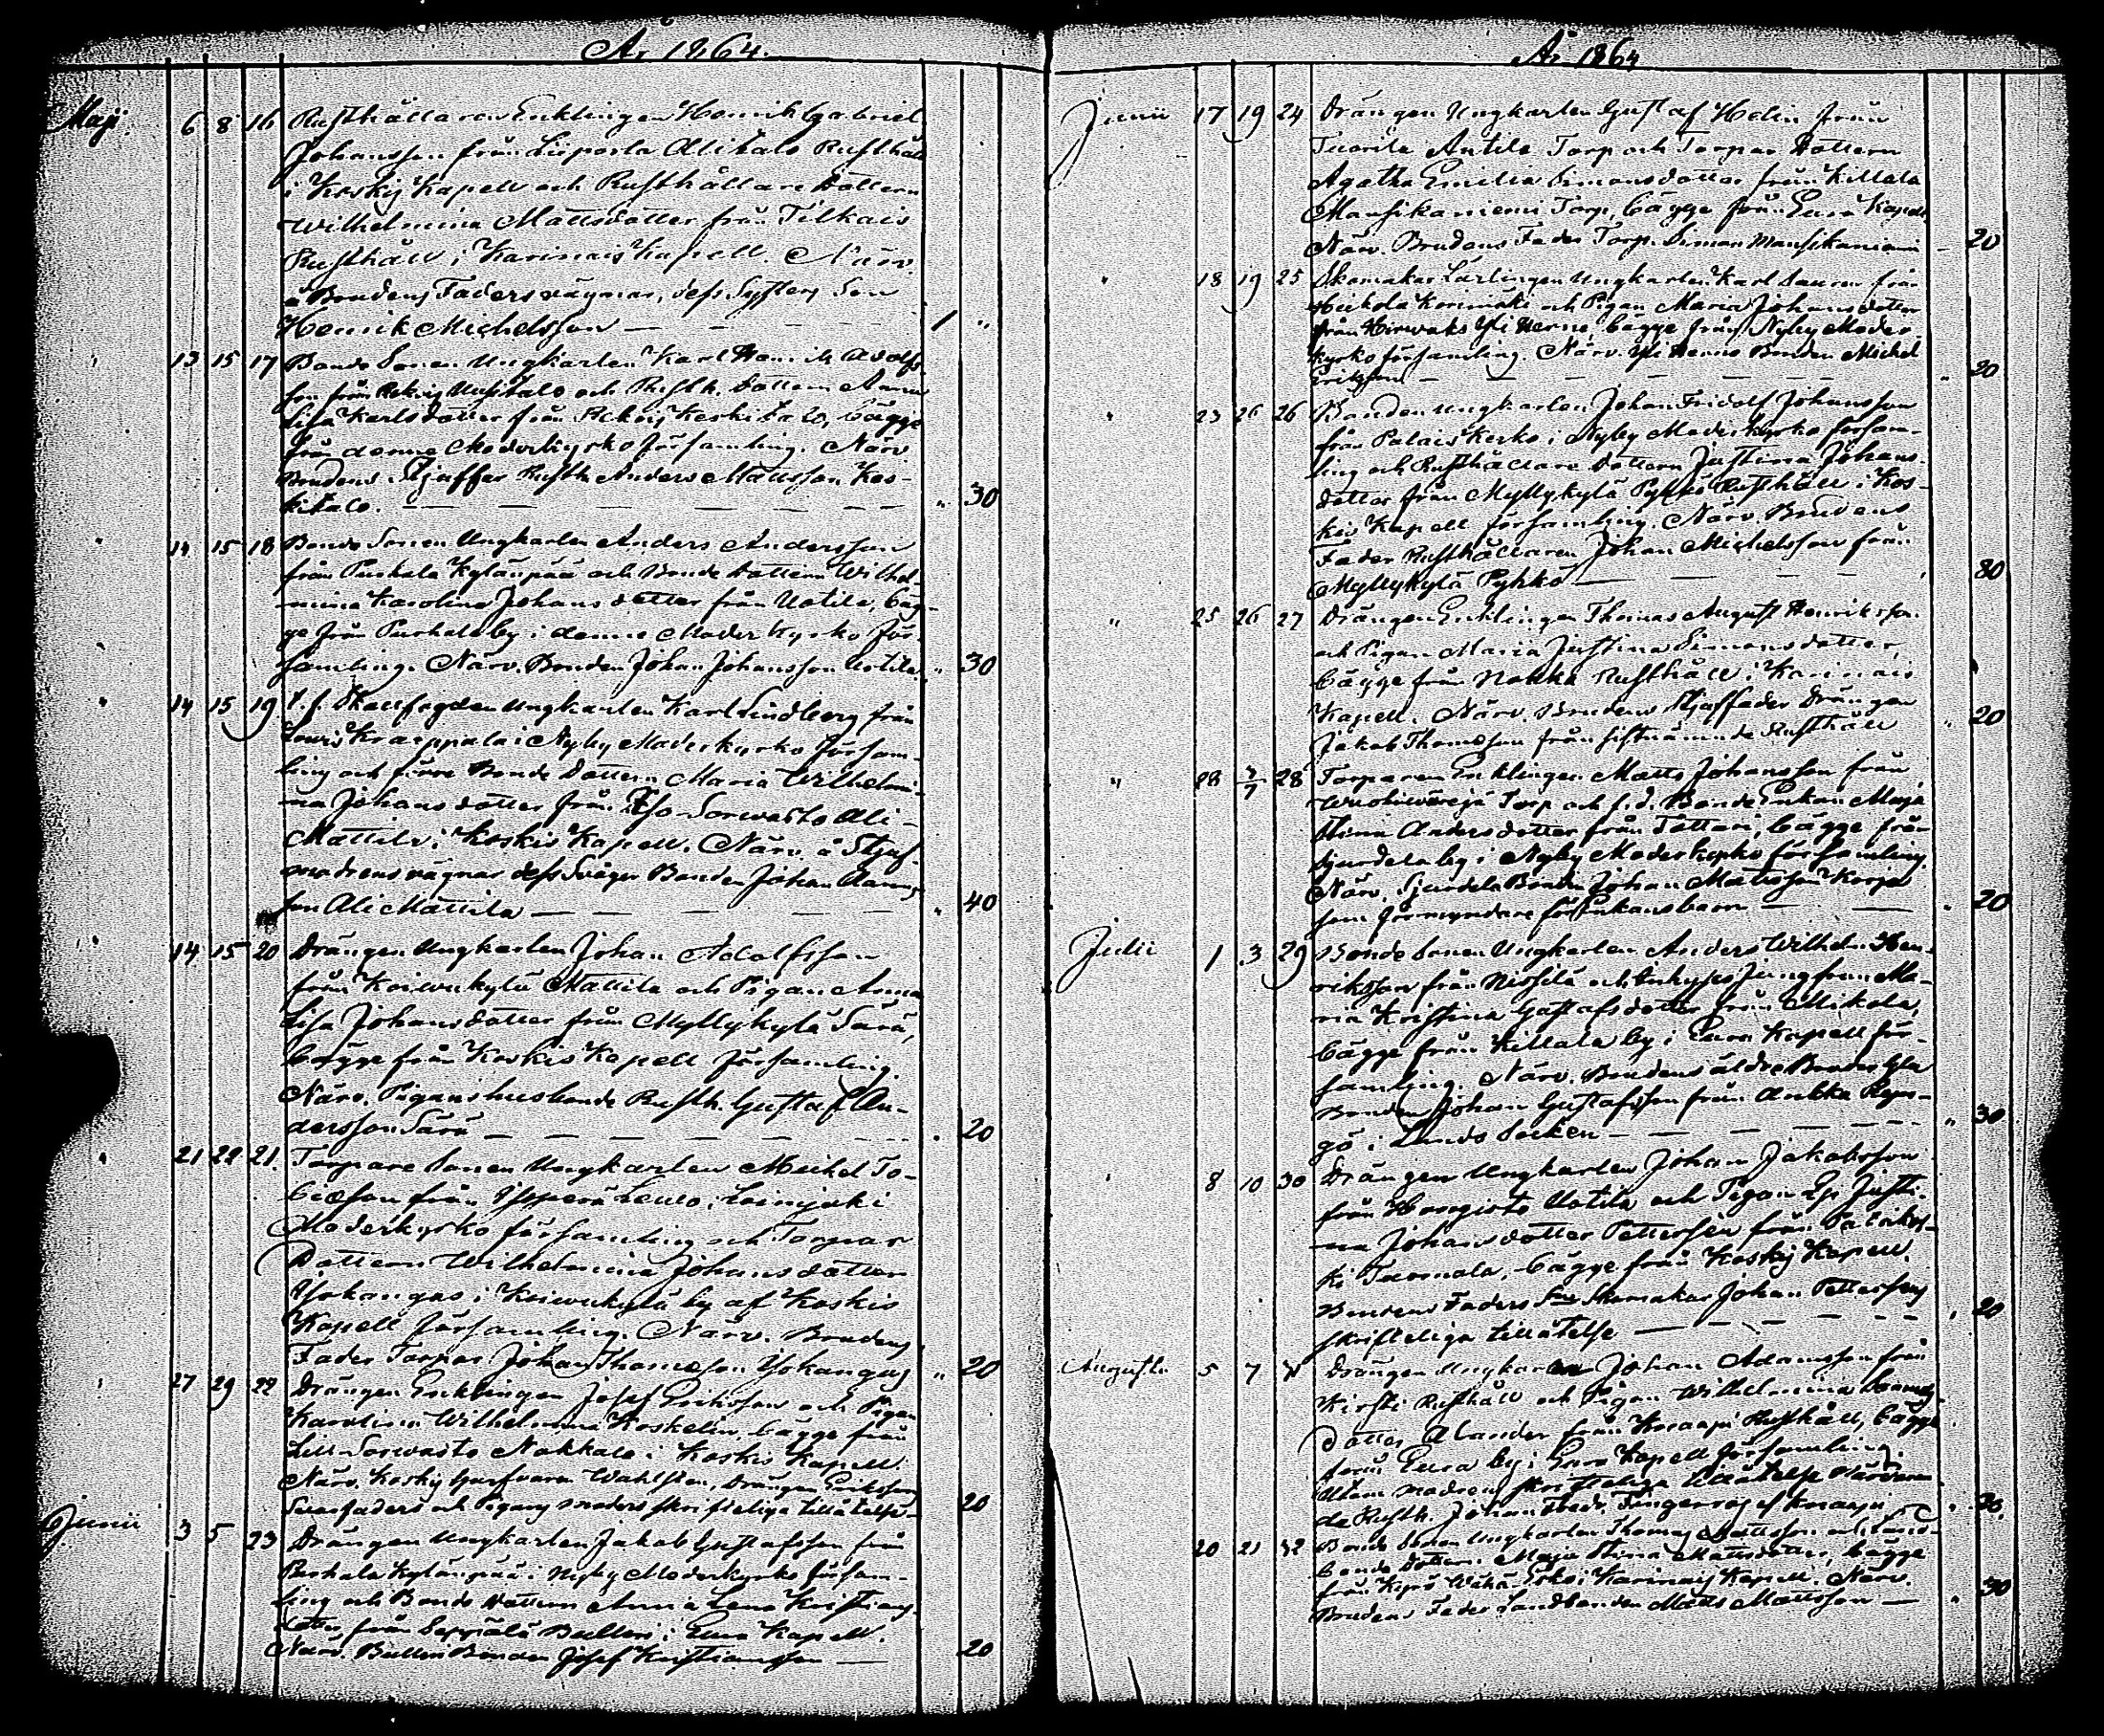 År 1864.
Maji 6 8 16 Rusthållaren Enklingen Henrik Gabriel
Johansson från Liiporla Alitalo Rusthåll
i Koskis Kapell och Rusthållare Dottern
Wilhelmina Mattsdotter från Tilkais
Rusthåll i Karinais Kapell. Närv.
å Brudens Faders vägnar, dess Systers Son
Henrik Michelsson — 1 "
" 13 15 17 Bonde Sonen Ungkarlen Karl Henrik Adolfs
son från Uusitalo och Rusth. Dottern Anna
Lisa Karlsdotter från Keskitalo, bägge
från denna Moderkyrko församling. Närv
Brudens Stjuffar Rusth. Anders Mattsson Kes-
kitalo. — " 30
" 14 15 18 Bonde Sonen Ungkarlen Anders Andersson
från Purhala Kylänpää och Bonde Dottern Wilhel-
mina Karolina Johansdotter från Uotila, bäg-
ge från Purhala by i denna Moder Kyrko för-
samling. Närv. Bonden Johan Johansson Uotila " 30
" 14 15 19 Ungkarlen Karl Lindberg från
Krappala i Nyby Moderkyrko försam-
ling och förre Bonde Dottern Maria Wilhelmi-
na Johansdotter från Iso-Sorwasto Ali-
Mattila i Koskis Kapell. Närv. å Stjuf-
modrens vägnar dess Svåger Bonden Johan
son Ali Mattila — " 40
14 15 20 Drängen Ungkarlen Johan Adolfsson
från Koiwukylä Mattila och Pigan Anna
Lisa Johansdotter från Myllykylä Särä,
bägge från Koskis Kapell församling.
Närv. Pigans husbonde Rusth. Gustaf An-
dersson Särä — . 20
" 21 22 21. Torpare Sonen Ungkarlen Michel To-
biasson från i Loimijoki
Moderkyrko församling och Torpar
Dottern Wilhelmina Johansdotter
Isokangas i Koiwukylä by af Koskis
Kapell församling. Närv. Brudens
Fader Torpar Johan Thomasson Isokangas " 20
" 27 29 22 Drängen Enklingen Josef Eriksson och Pigan
Karolina Wilhelmina Koskelin, bägge från
Lill-Sorwasto Nokkala i Koskis Kapell
Närv. Koskis Garfvaren Wahlsten, Drängen Erikssons
Swärfaders och Pigans moders skrifteliga tillåtelse — 20
Junii 3 5 23 Drängen Ungkarlen Jakob Gustafsson från
Purhala Kylänpää i Nyby Moderkyrko försam-
ling och Bonde Dottern Anna Lena Kristians-
dotter från Seppälä Bulleri i Eura Kapell.
Närv. Bonden Josef Kristiansson — 20
År 1864
Junii 17 19 24 Drängen Ungkarlen Gustaf Helin från
Tuorila Antila Torp och Torpar Dottern
Agatha Emilia Simonsdotter från Killala
Mansikaniemi Torp, bägge från Eura Kapell
Närv. Brudens Fader Torp. Simon Mansikaniemi — 20
" 18 19 25 Skomakar Lärlingen Ungkarlen Karl från
Heikola och Pigan Maria Johansdotter
från Hirwaks Yli Nerna bägge från Nyby Moder
kyrko församling. Närv. Bonden Michel
Eriksson — " 20
" 23 26 26 Bonden Ungkarlen Johan Fridolf Johansson
från Palais Kerko i Nyby Moderkyrko försam-
ling och Rusthållare Dottern Justina Johans-
dotter från Myllykylä Pyhkö Rusthåll i Kos-
kis Kapell församling. Närv. Brudens
Fader Rusthållaren Johan Michelsson från
Myllykylä Pyhkö — 80
" 25 26 27 Drängen Enklingen Thomas August Henriksson
och Pigan Maria Justina Simonsdotter,
bägge från Rusthåll i Karinais
Kapell. Närv. Brudens Stjuffader Drängen
Jakob Thomasson från sistnämnde Rusthåll " 20
" 28 3/7 28 Torparen Enklingen Matts Johansson från
Torp och f.d. Bonde Enkan Maja
Stina Andersdotter från Tattari, bägge från
Sjurdela by i Nyby Moderkyrko församling
Närv. Sjurdela Bonden Johan Mattsson Korpi
som förmyndare för Enkans barn — . 20
Julii 1 3 29 Bonde Sonen Ungkarlen Anders Wilhelm Hen-
riksson från Nissilä och Jungfrun Ma-
ria Kristina Gustafsdotter från Mikola,
bägge från Killala by i Eura Kapell för-
samling. Närv. Brudens äldre Broder
Bonden Johan Gustafsson från
gö i Lundo Socken — " 30
" 8 10 30 Drängen Ungkarlen Johan Jakobsson
från Hongisto Uotila och Pigan Justi-
na Johansdotter Pettersén från
Tuomola, bägge från Koskis Kapell.
Brudens Faders Skomakar Johan Petterséns
skrifteliga tillåtelse — " 20
Augusti 5 7 31 Drängen Ungkarlen Johan Adamsson från
Kirsti Rusthåll och Pigan Wilhelmina
dotter Alander från Rusthåll, bägge
från Eura by i Eura Kapell församling.
Utom modrens skrifteliga tillåtelse Närvaran-
de Rusth. Johan Fredr. Fingerroos — " 30.
20 21 32 Bonde Sonen Ungkarlen Thomas Mattsson och Land-
bonde Dottern Maja Stina Mattsdotter, bägge
från Kyrö i Karinais Kapell. Närv.
Brudens Fader Landbonden Matts Mattsson — . 30